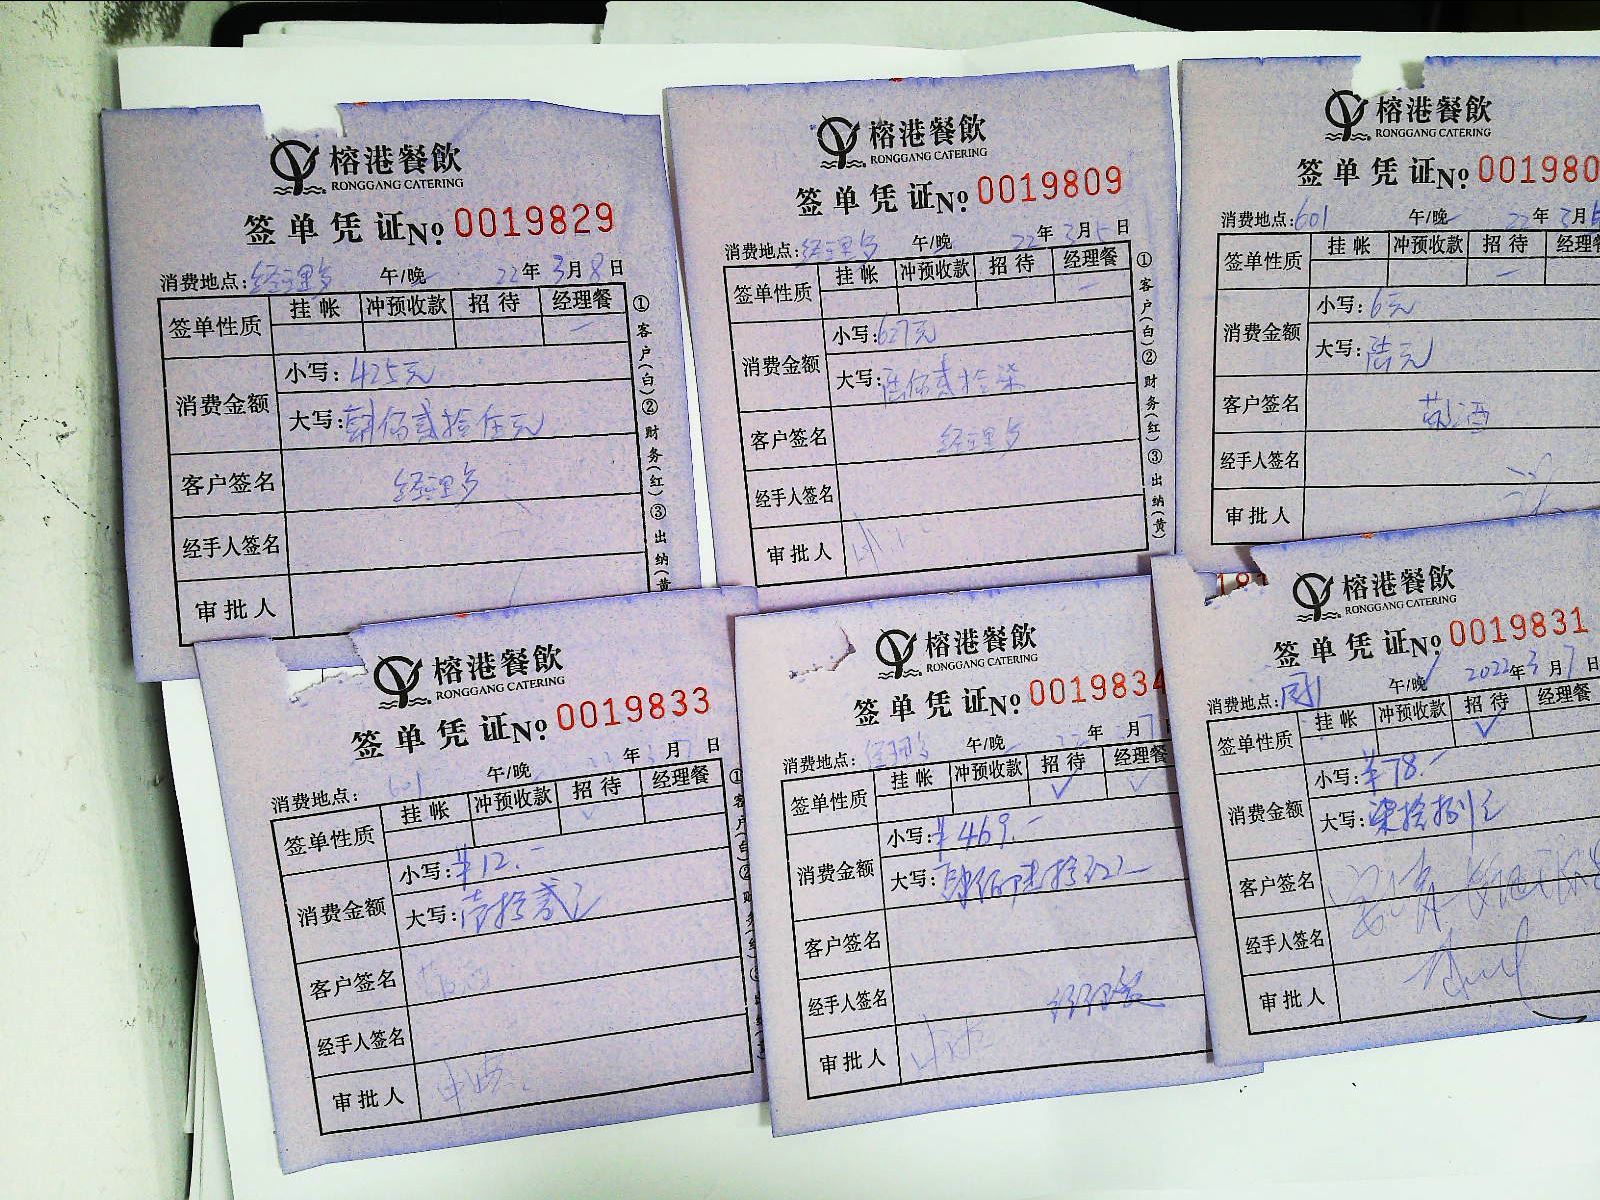 榕港餐飲
RONGGANG CATERING
签单凭证No. 0019829
消费地点: 经理 午/晚 22年3月8日
签单性质 挂帐 冲预收款 招待 经理餐
消费金额
小写: 425元
大写: 肆佰贰拾伍元
客户签名 经理
经手人签名
审批人
①客户(白)②财务(红)③出纳(黄
榕港餐飲
RONGGANG CATERING
签单凭证No. 0019809
消费地点: 经理 午/晚 22年3月 日
签单性质 挂帐 冲预收款 招待 经理餐
消费金额
小写: 627元
大写: 陆佰贰拾柒
客户签名 经理
经手人签名
审批人
①客户(白)②财务(红)③出纳(黄)
榕港餐飲
RONGGANG CATERING
签单凭证No. 001980
消费地点: 601 午/晚 22年3月
签单性质 挂帐 冲预收款 招待 经理餐
消费金额
小写: 6元
大写: 陆元
客户签名
经手人签名
审批人
榕港餐飲
RONGGANG CATERING
签单凭证No. 0019833
消费地点: 601 午/晚 年 月7日
签单性质 挂帐 冲预收款 招待 经理餐
消费金额
小写: ¥12.-
大写: 壹拾贰元
客户签名
经手人签名
审批人
榕港餐飲
RONGGANG CATERING
签单凭证No. 0019834
消费地点: 经理 午/晚 22年 月7日
签单性质 挂帐 冲预收款 招待 经理餐
消费金额
小写: ¥469.-
大写: 肆佰陆拾玖元
客户签名
经手人签名 经理
审批人
榕港餐飲
RONGGANG CATERING
签单凭证No. 0019831
消费地点: 午/晚 2022年3月7日
签单性质 挂帐 冲预收款 招待 经理餐
消费金额
小写: ¥78.-
大写: 柒拾捌元
客户签名
经手人签名
审批人